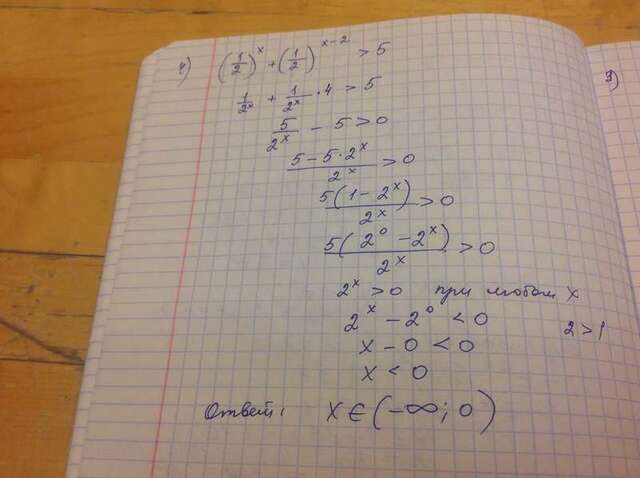 4) (1/2)^x + (1/2)^(x-2) > 5
1/2^x + 1/2^x · 4 > 5
5/2^x - 5 > 0
(5 - 5 · 2^x)/2^x > 0
5(1 - 2^x)/2^x > 0
5(2^0 - 2^x)/2^x > 0
2^x > 0 при любом x
2^x - 2^0 < 0 2 > 1
x - 0 < 0
x < 0
Ответ: x ∈ (-∞; 0)
3)